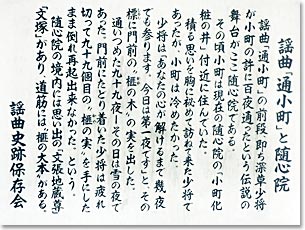 謡曲「通小町」と随心院
謡曲「通小町」の前段、即ち深草少将
が小町の許に百夜通ったという伝説の
舞台がここ随心院である。
その頃小町は現在の随心院の「小町化
粧の井」付近に住んでいた。
積る思いを胸に秘めて訪ねて来た少将で
あったが、小町は冷めたかった。
少将は「あなたの心が解けるまで幾夜
でも参ります。今日は第一夜です」と、その
標に門前の"榧の木"の実を出した。
通いつめた九十九夜―その日は雪の夜で
あった。門前にたどり着いた少将は疲れ
切って九十九個目の"榧の実"を手にした
まま倒れ再起出来なかった。という。
随心院の境内には思い出の「文張地蔵尊」
「文塚」があり、道筋には「榧の大木」がある。
謡曲史跡保存会